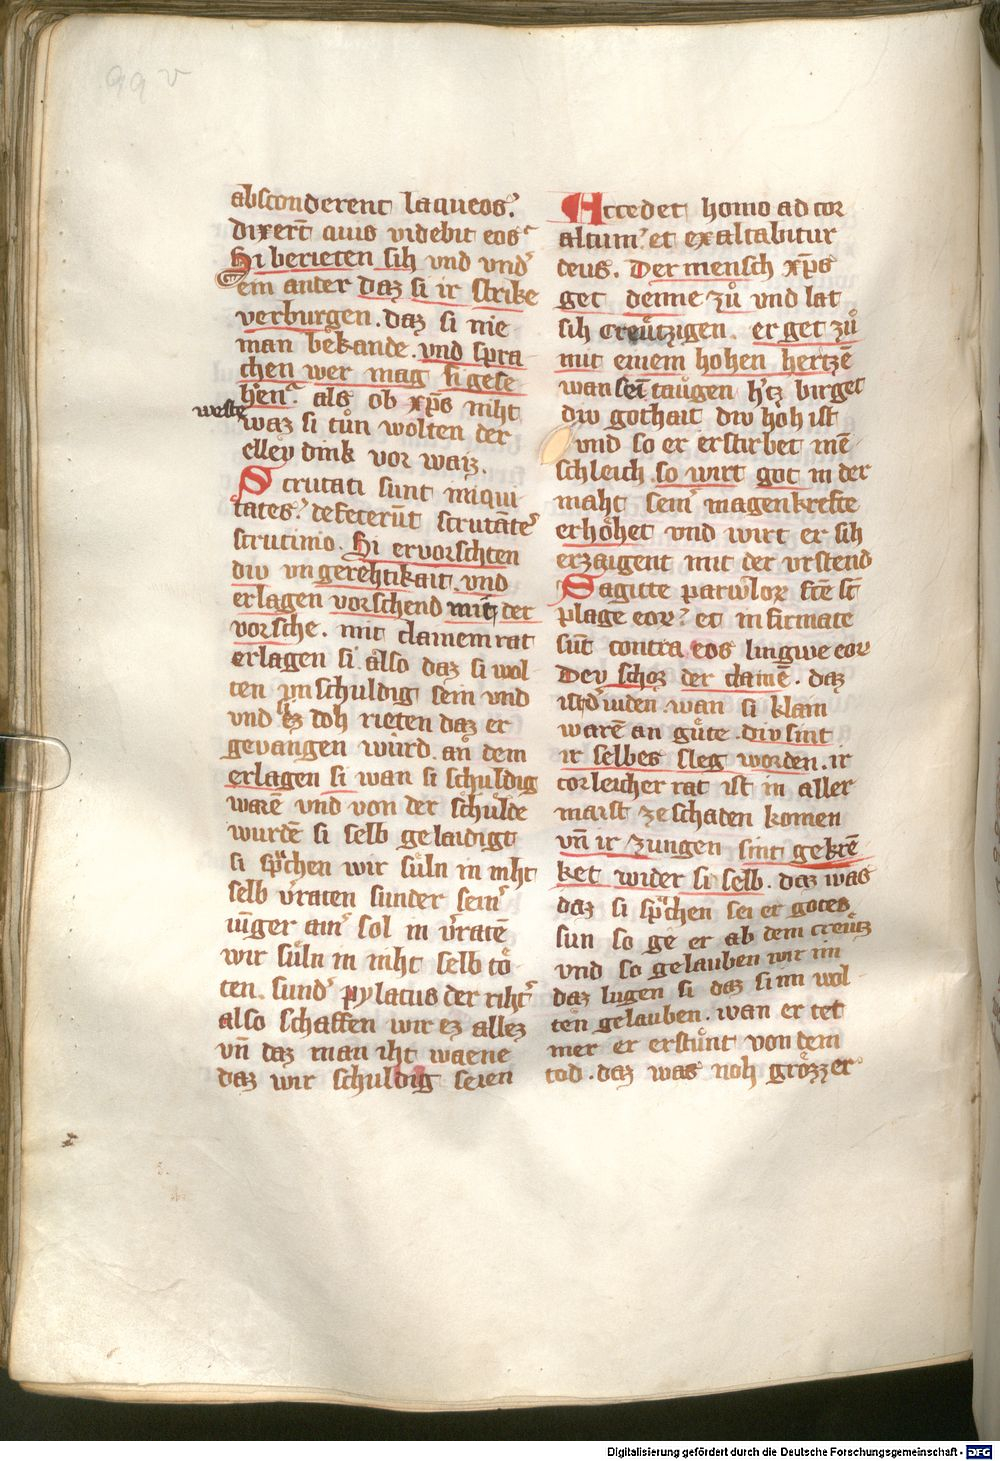 99 v
absconderent laqueos.
dixerūt quis videbit eos
Si berieten sih vnd vnd'
em anter daz si ir strike
verburgen. daz si nie
man bekande. vnd spra
chen wer mag si gese
hen. als ob xp̄s niht
weste waz si tůn wolten der
elley dink vor waiz.
Scrutati sunt iniqui
tates. defecerūt scrutāte'
scrutinio. Si ervorschten
div vngerehtikait. vnd
erlagen vorschend mit der
vorsche. mit clainem rat
erlagen si also daz si wol
ten vnschuldig sein vnd
vnd ez doh rieten daz er
gevangen würd. an dem
erlagen si wan si schuldig
warē vnd von der schulde
wurdē si selb gelaidigt
si sp̄chen wir süln in niht
selb v'raten sunder sein'
iūger ain' sol in v'ratē
wir süln in niht selb tö
ten. sund' pylatus der riht'
also schaffen wir ez allez
vn̄ daz man iht waene
daz wir schuldig seien
Accedet homo ad cor
altum. et exaltabitur
deus. Der mensch xp̄s
get denne zů vnd lat
sih creützigen. er get zů
mit einem hohen hertzē
wan sein taugen h'tz birget
div gothait div hoh ist
vnd so er erstirbet mē
schleich. so wirt got in der
maht sein' magenkrefte
erhöhet vnd wirt er sih
erzaigent mit der vrstend
Sagitte parwlor fc̄e st̄
plagē eor. et infirmate
sūt contra eos lingwe eor
Dey schoz der clainē. daz
ist d' iuden wan si klain
warē an güte. div sint
ir selbes sleg worden. ir
torleicher rat ist in aller
maist ze schaden komen
vn̄ ir zungen sint gekrē
ket wider si selb. daz was
daz si sp̄chen sei er gotes
sun so ge er ab dem creütz
vnd so gelauben wir im
daz lugen si daz si im wol
ten gelauben. wan er tet
mer er erstůnt von dem
tod. daz was noh grözzer
Digitalisierung gefördert durch die Deutsche Forschungsgemeinschaft - DFG